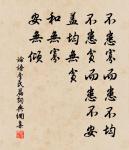 不患寡而患不均
不患貧而患不安
蓋均無貧
和無寡
安無傾
論語季氏篇